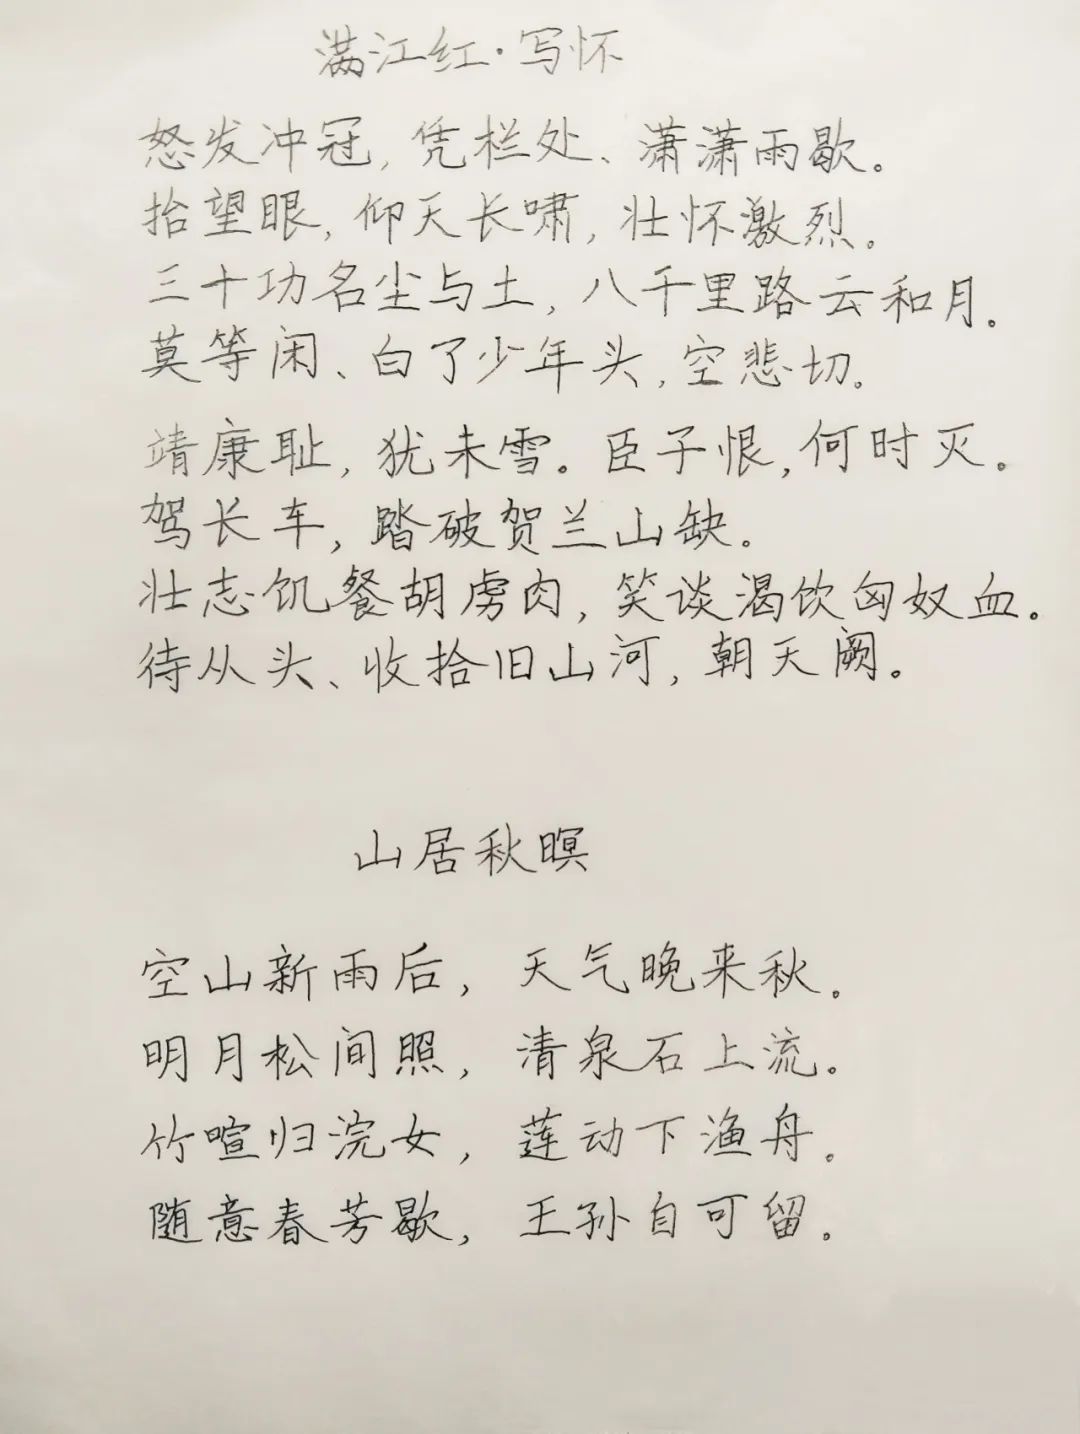 满江红·写怀
怒发冲冠,凭栏处、潇潇雨歇。
抬望眼,仰天长啸,壮怀激烈。
三十功名尘与土,八千里路云和月。
莫等闲、白了少年头,空悲切。
靖康耻,犹未雪。臣子恨,何时灭。
驾长车,踏破贺兰山缺。
壮志饥餐胡虏肉,笑谈渴饮匈奴血。
待从头、收拾旧山河,朝天阙。
山居秋暝
空山新雨后,天气晚来秋。
明月松间照,清泉石上流。
竹喧归浣女,莲动下渔舟。
随意春芳歇,王孙自可留。